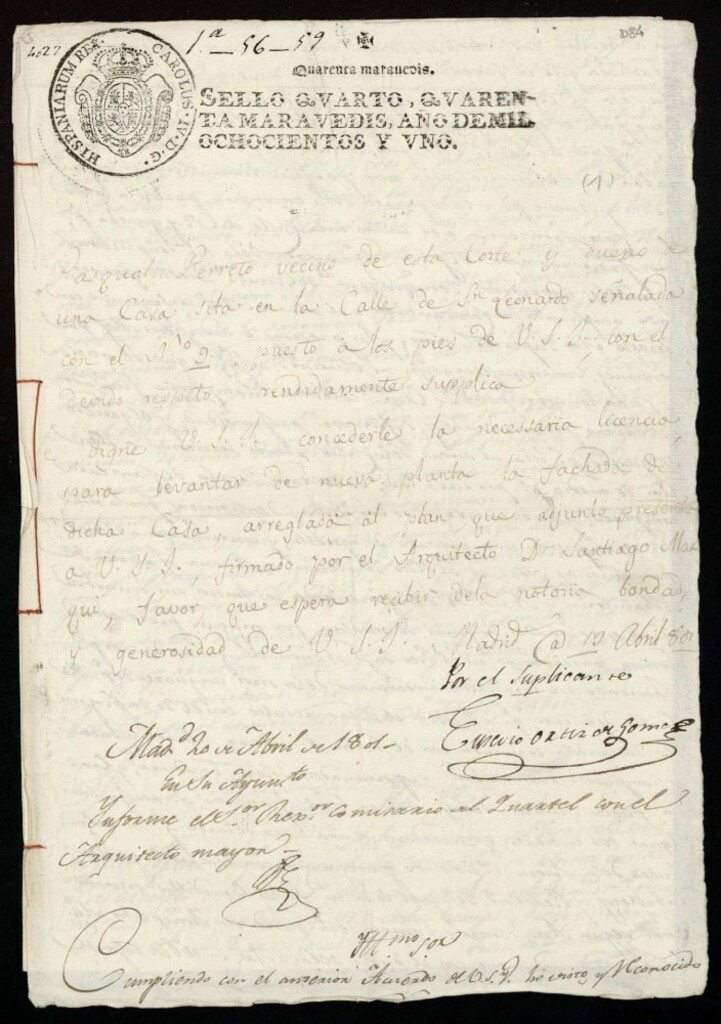 4027
1.ª_56_59
D84
HISPANIARUM REX. CAROLUS. IV. D. G.
Quarenta marauedis.
SELLO QVARTO, QVAREN-
TA MARAVEDIS, AÑO DE MIL
OCHOCIENTOS Y VNO.
(1)
Pasqual Perreto vecino de esta Corte y dueño de
una Casa sita en la Calle de Sn Leonardo señalada
con el N.ro 9. puesto à los pies de V. S. I. con el
devido respeto rendidamente supplica
se digne V. S. I. concederle la necessaria licencia
para levantar de nueva planta la fachada de
dicha Casa, arreglada al plan que adjunto presenta
a V. S. I., firmado por el Arquitecto D. Santiago
favor, que espera recibir dela notoria bondad,
y generosidad de V. S. I. Madrid @ 19 Abril 801
Por el Suplicante
Eusevio Ortiz de Gomez
Mad.d 20 de Abril de 1801-
En su Ayuntto
Informe el S.or Rex.or Comisario del Quartel con el
Arquitecto mayor-
Yll.mo S.or
Cumpliendo con el anterior Acuerdo de V.S.Y. he visto, y Reconocido